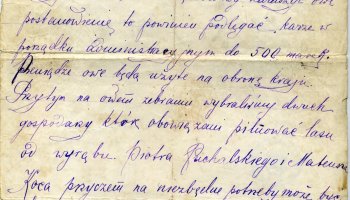 postanowienie to powinien podlegać karze w
porządku administracyjnym do 500 marek.
Pieniądze owe będą użyte na obronę kraju.
Przytym na owem zebraniu wybraliśmy dwuch
gospodarzy którzy obowiązani pilnować lasu
od wyrąbu. Piotra i Mateusza
Koca przyczem na niezbędne potrzeby może być